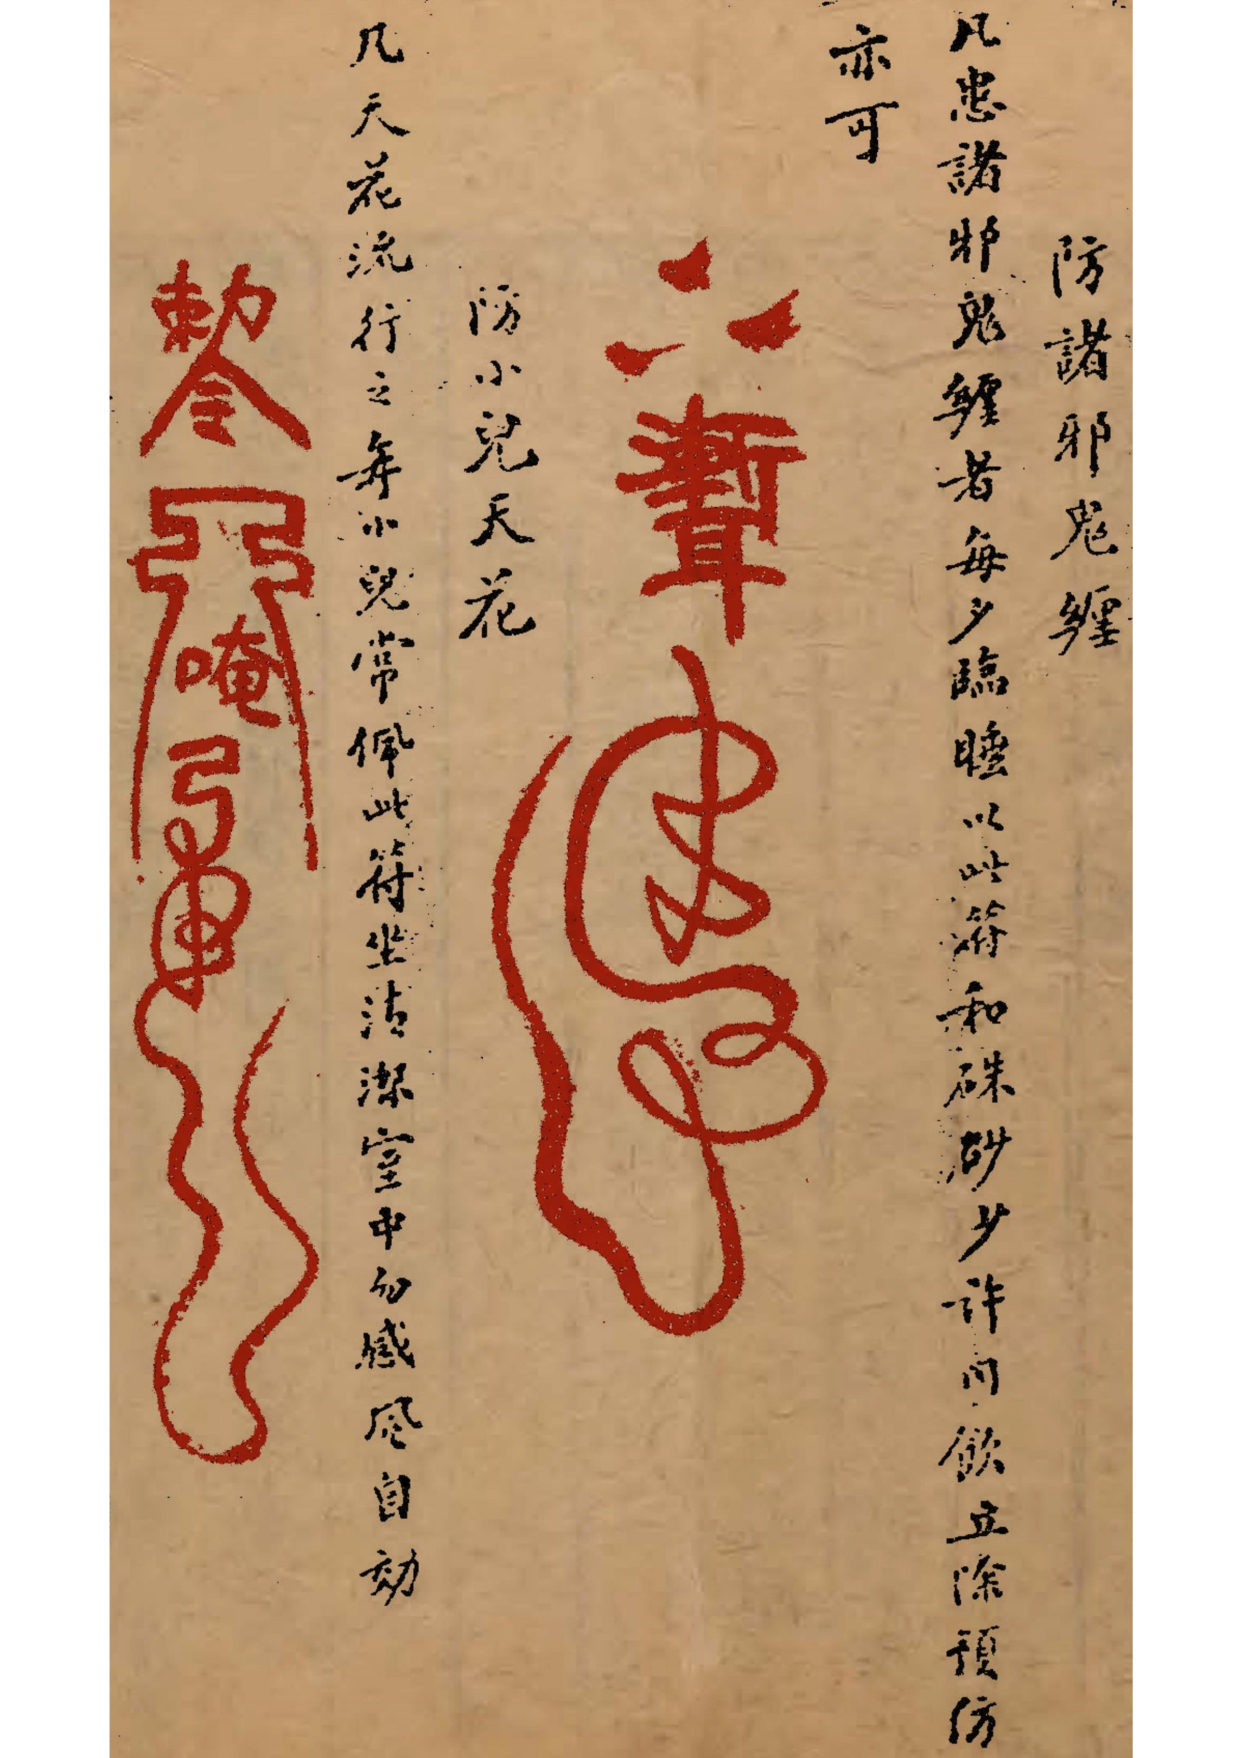 防諸邪鬼纏
凡患諸邪鬼纏者每夕臨睡以此符和硃砂少許同飲立除預防
亦可
防小兒天花
凡天花流行之年小兒常佩此符坐清潔室中勿感風自効
勅令
唵